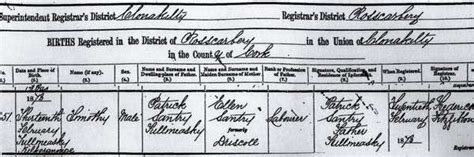 Superintendent Registrar's District Clonakilty Registrar's District Rosscarbery
BIRTHS Registered in the District of Rosscarbery in the Union of Clonakilty
in the County of Cork
Date and Place of Birth. Name (if any). Sex. Name and Surname and Dwelling-place of Father. Name and Surname and Maiden Surname of Mother. Rank or Profession of Father. Signature, Qualification, and Residence of Informant. When Registered. Signature of Registrar.
1878 Patrick Ellen Patrick
Thirteenth Timothy Male Santry Santry Labourer Santry Twentieth
February Killmeasky formerly Father February
Driscoll Killmeasky 1878